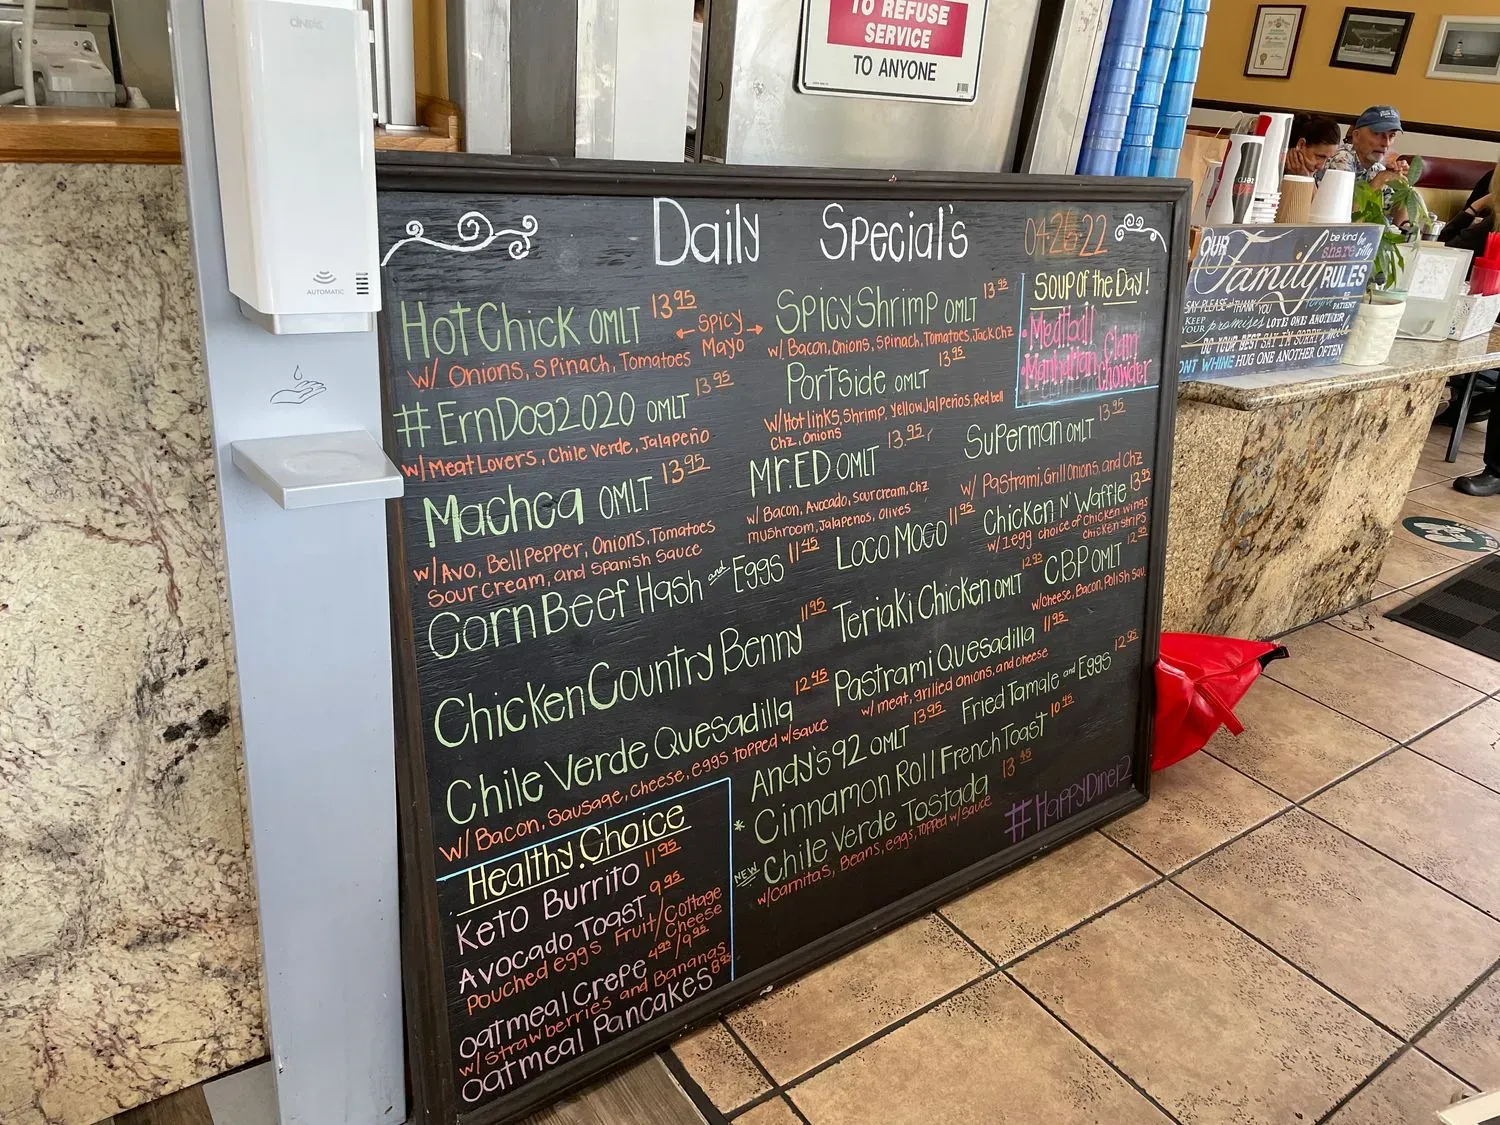 TO REFUSE
SERVICE
TO ANYONE
AUTOMATIC
Daily Special's 04.26.22
HotChick OMLT 13 95
w/ Onions, Spinach, Tomatoes
← Spicy →
Mayo
#ErnDog2020 OMLT 13 95
w/ Meat Lovers, Chile Verde, Jalapeño
Machca OMLT 13 95
w/ Avo, Bell Pepper, Onions, Tomatoes
Sour cream, and Spanish Sauce
Corn Beef Hash and Eggs 11 45
Chicken Country Benny 11 95
Chile Verde Quesadilla 12 45
w/ Bacon, Sausage, cheese, eggs topped w/sauce
Healthy Choice
Keto Burrito 11 95
Avocado Toast 9 95
Pouched eggs Fruit/Cottage
Cheese
Oatmeal Crepe 4 95/9 95
w/ Strawberries and Bananas
Oatmeal Pancakes 8 95
Spicy Shrimp OMLT 13 95
w/ Bacon, Onions, Spinach, Tomatoes, Jack Chz
Portside OMLT 13 95
w/ Hot links, Shrimp, Yellow Jalpeños, Red bell
Chz, Onions
Mr. ED OMLT 13 95
w/ Bacon, Avocado, Sour cream, Chz
mushroom, Jalapenos, Olives
Loco Moco 11 95
Teriaki Chicken OMLT 12 95
Pastrami Quesadilla 11 95
w/ meat, grilled onions, and cheese
Andy's 92 OMLT 13 95
Fried Tamale and Eggs 12 95
* Cinnamon Roll French Toast 10 45
NEW Chile Verde Tostada 13 45
w/ Carnitas, Beans, eggs, topped w/sauce
Soup of the Day!
• Meatball
• Manhattan Clam
Chowder
Superman OMLT 13 95
w/ Pastrami, Grill Onions, and Chz
Chicken N' Waffle 13 95
w/ 1 egg choice of chicken wings
chicken strips
CBP OMLT 12 95
w/ Cheese, Bacon, Polish Sau.
#HappyDiner2
OUR
Family
RULES
be kind
share
silly
SAY PLEASE and THANK YOU
forgive
BE
PATIENT
KEEP
YOUR promises LOVE ONE ANOTHER
DO YOUR BEST SAY I'M SORRY smile
DONT WHINE HUG ONE ANOTHER OFTEN